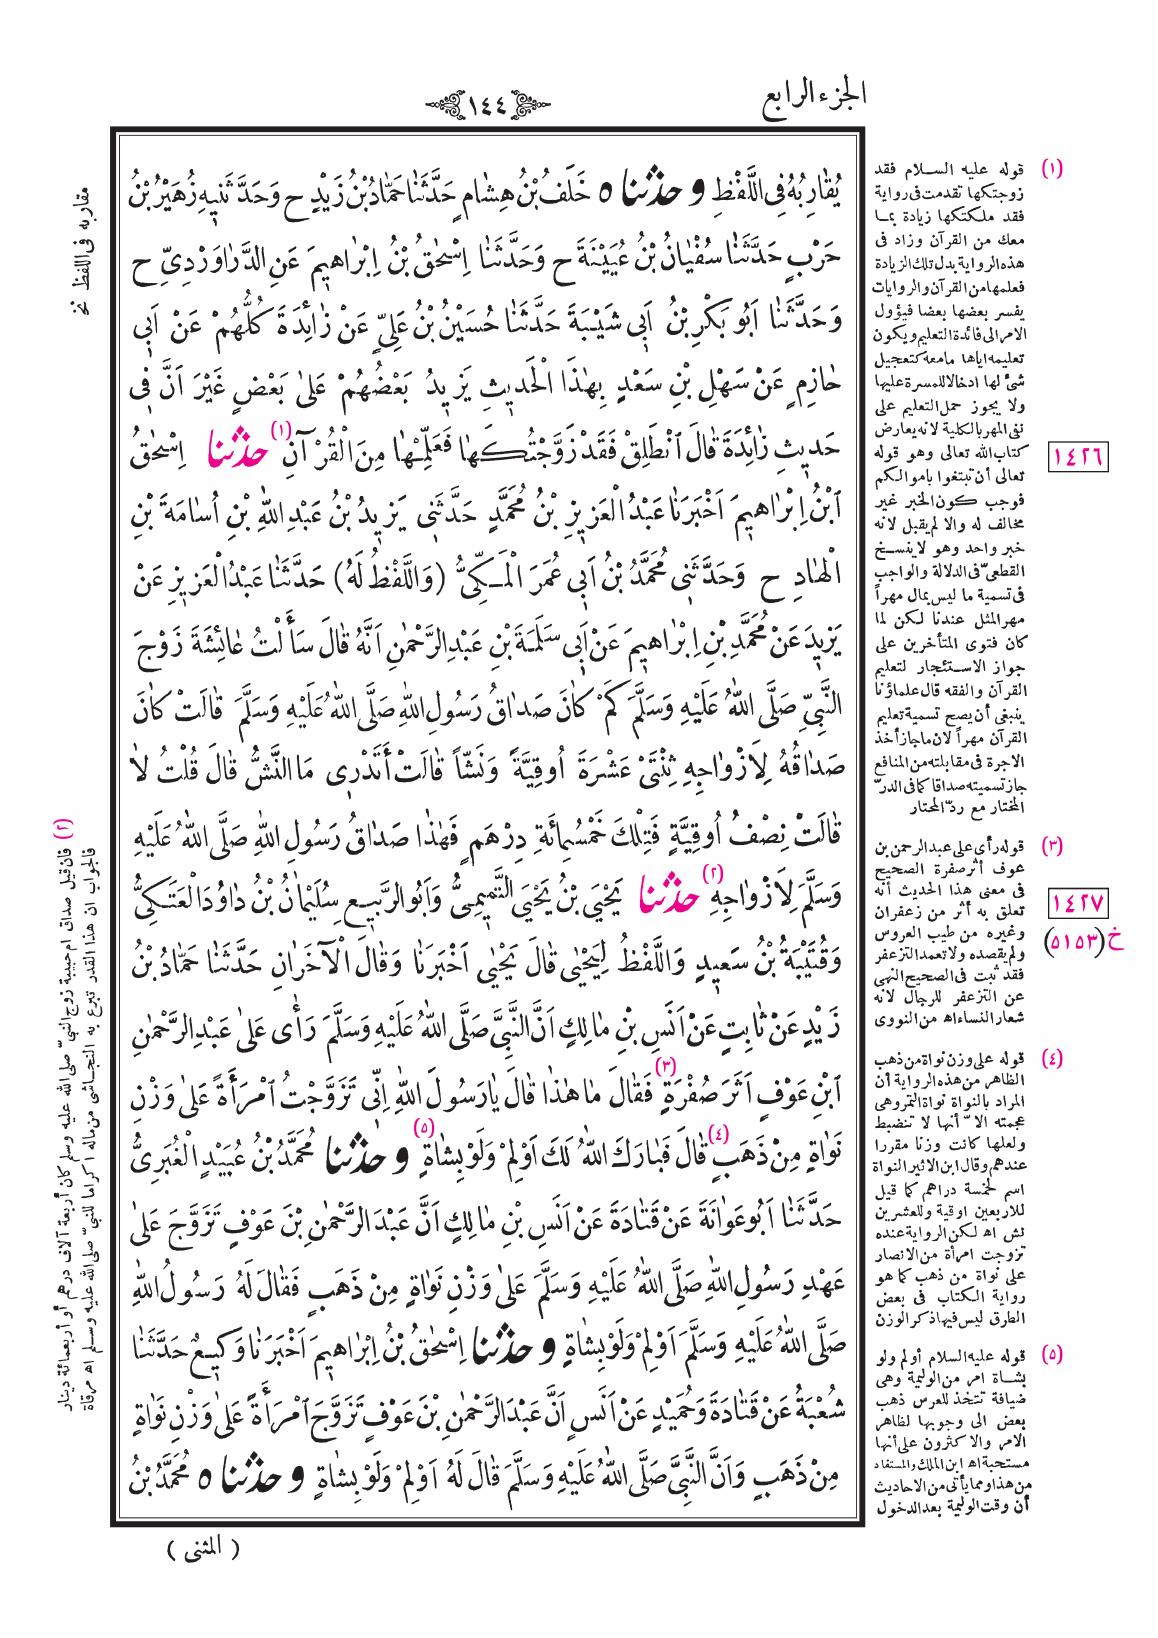 الجزء الرابع
١٤٤
يُقَارِبُهُ فِى اللَّفْظِ و حدثنا ٥ خَلَفُ بْنُ هِشَامٍ حَدَّثَنَا حَمَّادُ بْنُ زَيْدٍ ح وَحَدَّثَنِيهِ زُهَيْرُ بْنُ
حَرْبٍ حَدَّثَنَا سُفْيَانُ بْنُ عُيَيْنَةَ ح وَحَدَّثَنَا اِسْحٰقُ بْنُ اِبْرَاهِيمَ عَنِ الدَّرَاوَرْدِىِّ ح
وَحَدَّثَنَا اَبُو بَكْرِ بْنُ اَبِى شَيْبَةَ حَدَّثَنَا حُسَيْنُ بْنُ عَلِىٍّ عَنْ زَائِدَةَ كُلُّهُمْ عَنْ اَبِى
حَازِمٍ عَنْ سَهْلِ بْنِ سَعْدٍ بِهٰذَا الْحَدِيثِ يَزِيدُ بَعْضُهُمْ عَلىٰ بَعْضٍ غَيْرَ اَنَّ فِى
حَدِيثِ زَائِدَةَ قَالَ اَنْطَلِقْ فَقَدْ زَوَّجْتُكَهَا فَعَلِّمْهَا مِنَ الْقُرْآنِ (١) حدثنا اِسْحٰقُ
اَبْنُ اِبْرَاهِيمَ اَخْبَرَنَا عَبْدُ الْعَزِيزِ بْنُ مُحَمَّدٍ حَدَّثَنِى يَزِيدُ بْنُ عَبْدِ اللهِ بْنِ اُسَامَةَ بْنِ
الْهَادِ ح وَحَدَّثَنِى مُحَمَّدُ بْنُ اَبِى عُمَرَ الْمَكِّىُّ (وَاللَّفْظُ لَهُ) حَدَّثَنَا عَبْدُ الْعَزِيزِ عَنْ
يَزِيدَ عَنْ مُحَمَّدِ بْنِ اِبْرَاهِيمَ عَنْ اَبِى سَلَمَةَ بْنِ عَبْدِ الرَّحْمٰنِ اَنَّهُ قَالَ سَأَلْتُ عَائِشَةَ زَوْجَ
النَّبِىِّ صَلَّى اللهُ عَلَيْهِ وَسَلَّمَ كَمْ كَانَ صَدَاقُ رَسُولِ اللهِ صَلَّى اللهُ عَلَيْهِ وَسَلَّمَ قَالَتْ كَانَ
صَدَاقُهُ لِاَزْوَاجِهِ ثِنْتَىْ عَشْرَةَ اُوقِيَّةً وَنَشّاً قَالَتْ أَتَدْرِى مَا النَّشُّ قَالَ قُلْتُ لَا
قَالَتْ نِصْفُ اُوقِيَّةٍ فَتِلْكَ خَمْسُمِائَةِ دِرْهَمٍ فَهٰذَا صَدَاقُ رَسُولِ اللهِ صَلَّى اللهُ عَلَيْهِ
وَسَلَّمَ لِاَزْوَاجِهِ (٢) حدثنا يَحْيَى بْنُ يَحْيَى التَّمِيمِىُّ وَاَبُو الرَّبِيعِ سُلَيْمَانُ بْنُ دَاوُدَ الْعَتَكِىُّ
وَقُتَيْبَةُ بْنُ سَعِيدٍ وَاللَّفْظُ لِيَحْيٰى قَالَ يَحْيٰى اَخْبَرَنَا وَقَالَ الْآخَرَانِ حَدَّثَنَا حَمَّادُ بْنُ
زَيْدٍ عَنْ ثَابِتٍ عَنْ اَنَسِ بْنِ مَالِكٍ اَنَّ النَّبِىَّ صَلَّى اللهُ عَلَيْهِ وَسَلَّمَ رَأَى عَلىٰ عَبْدِ الرَّحْمٰنِ
اَبْنِ عَوْفٍ اَثَرَ صُفْرَةٍ (٣) فَقَالَ مَا هٰذَا قَالَ يَارَسُولَ اللهِ اِنِّى تَزَوَّجْتُ اَمْرَأَةً عَلىٰ وَزْنِ
نَوَاةٍ مِنْ ذَهَبٍ (٤) قَالَ فَبَارَكَ اللهُ لَكَ اَوْلِمْ وَلَوْ بِشَاةٍ (٥) و حدثنا مُحَمَّدُ بْنُ عُبَيْدٍ الْغُبَرِىُّ
حَدَّثَنَا اَبُو عَوَانَةَ عَنْ قَتَادَةَ عَنْ اَنَسِ بْنِ مَالِكٍ اَنَّ عَبْدَ الرَّحْمٰنِ بْنَ عَوْفٍ تَزَوَّجَ عَلىٰ
عَهْدِ رَسُولِ اللهِ صَلَّى اللهُ عَلَيْهِ وَسَلَّمَ عَلىٰ وَزْنِ نَوَاةٍ مِنْ ذَهَبٍ فَقَالَ لَهُ رَسُولُ اللهِ
صَلَّى اللهُ عَلَيْهِ وَسَلَّمَ اَوْلِمْ وَلَوْ بِشَاةٍ و حدثنا اِسْحٰقُ بْنُ اِبْرَاهِيمَ اَخْبَرَنَا وَكِيعٌ حَدَّثَنَا
شُعْبَةُ عَنْ قَتَادَةَ وَحُمَيْدٍ عَنْ اَنَسٍ اَنَّ عَبْدَ الرَّحْمٰنِ بْنَ عَوْفٍ تَزَوَّجَ اَمْرَأَةً عَلىٰ وَزْنِ نَوَاةٍ
مِنْ ذَهَبٍ وَاَنَّ النَّبِىَّ صَلَّى اللهُ عَلَيْهِ وَسَلَّمَ قَالَ لَهُ اَوْلِمْ وَلَوْ بِشَاةٍ و حدثنا ٥ مُحَمَّدُ بْنُ
( المثنى )
(١) قوله عليه السلام فقد
زوجتكها تقدمت فى رواية
فقد ملكتكها زيادة بما
معك من القرآن وزاد فى
هذه الرواية بدل تلك الزيادة
فعلمها من القرآن والروايات
يفسر بعضها بعضا فيؤول
الامر الى فائدة التعليم ويكون
تعليمه اياها ما معه كتعجيل
شئ لها ادخالا للمسرة عليها
ولا يجوز حمل التعليم على
نفى المهر بالكلية لانه يعارض
كتاب الله تعالى وهو قوله
تعالى أن تبتغوا باموالكم
فوجب كون الخبر غير
مخالف له والا لم يقبل لانه
خبر واحد وهو لاينسخ
القطعىّ فى الدلالة والواجب
فى تسمية ما ليس بمال مهراً
مهر المثل عندنا لكن لما
كان فتوى المتأخرين على
جواز الاستئجار لتعليم
القرآن والفقه قال علماؤنا
ينبغى أن يصح تسمية تعليم
القرآن مهراً لان ماجاز أخذ
الاجرة فى مقابلته من المنافع
جاز تسميته صداقا كما فى الدرّ
المختار مع ردّ المحتار
(٣) قوله رأى على عبد الرحمن بن
عوف أثر صفرة الصحيح
فى معنى هذا الحديث أنه
تعلق به أثر من زعفران
وغيره من طيب العروس
ولم يقصده ولا تعمد التزعفر
فقد ثبت فى الصحيح النهى
عن التزعفر للرجال لانه
شعار النساء اه من النووى
(٤) قوله على وزن نواة من ذهب
الظاهر من هذه الرواية أن
المراد بالنواة نواة التمر وهى
عجمته الاّ أنها لا تنضبط
ولعلها كانت وزنا مقررا
عندهم وقال ابن الاثير النواة
اسم لخمسة دراهم كما قيل
للاربعين اوقية وللعشرين
نش اه لكن الرواية عنده
تزوجت امرأة من الانصار
على نواة من ذهب كما هو
رواية الكتاب فى بعض
الطرق ليس فيها ذكر الوزن
(٥) قوله عليه السلام أولم ولو
بشاة امر من الوليمة وهى
ضيافة تتخذ للعرس ذهب
بعض الى وجوبها لظاهر
الامر والاكثرون على أنها
مستحبة اه ابن الملك والمستفاد
من هذا ومما يأتى من الاحاديث
أن وقت الوليمة بعد الدخول
١٤٢٦
١٤٢٧
خ (٥١٥٣)
مقاربه فى اللفظ نخ
(٢) فان قيل صداق ام حبيبة زوج النبىّ صلى الله عليه وسلم كان أربعة آلاف درهم أو أربعمائة دينار
فالجواب ان هذا القدر تبرع به النجاشى من ماله اكراما للنبىّ صلى الله عليه وسلم اه مرقاة